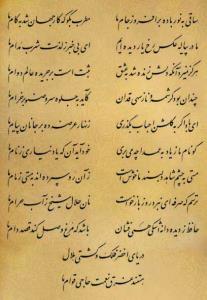 ساقی به نور باده برافروز جام ما مطرب بگو که کار جهان شد به کام ما
ما در پیاله عکس رخ یار دیده ایم ای بی خبر ز لذت شرب مدام ما
هرگز نمیرد آنکه دلش زنده شد بعشق ثبت است بر جریده عالم دوام ما
چندان بود کرشمه و ناز سهی قدان کاید به جلوه سرو صنوبر خرام ما
ای باد اگر به گلشن احباب بگذری زنهار عرضه ده بر جانان پیام ما
گو نام ما ز یاد به عمدا چه می بری خود آید آن که یاد نیاری ز نام ما
مستی به چشم شاهد دلبند ما خوش است زان رو سپرده اند به مستی زمام ما
ترسم که صرفه ای نبرد روز بازخواست نان حلال شیخ ز آب حرام ما
حافظ ز دیده دانه اشکی همی فشان باشد که مرغ وصل کند قصد دام ما
دریای اخضر فلک و کشتی هلال
هستند غرق نعمت حاجی قوام ما